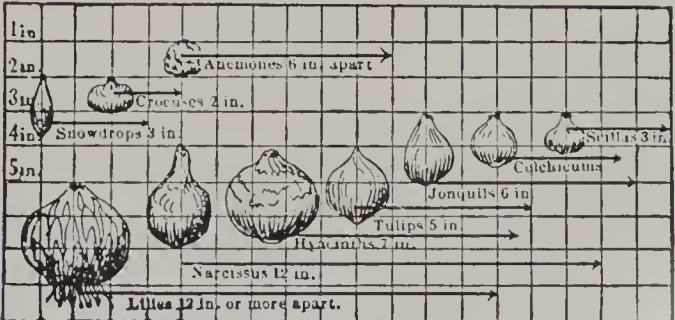 1 in
2 in
Anemones 6 in. apart
3 in
Crocuses 2 in.
Snowdrops 3 in.
4 in
Scillas 3 in.
Colchicums
5 in.
Jonquils 6 in.
Tulips 5 in.
Hyacinths 7 in.
Narcissus 12 in.
Lilies 12 in. or more apart.